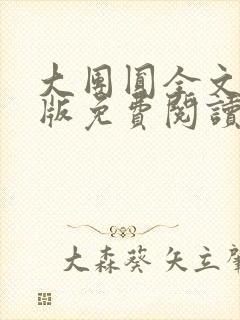 大团圆全文
版免費閱讀
大森葵 矢立肇